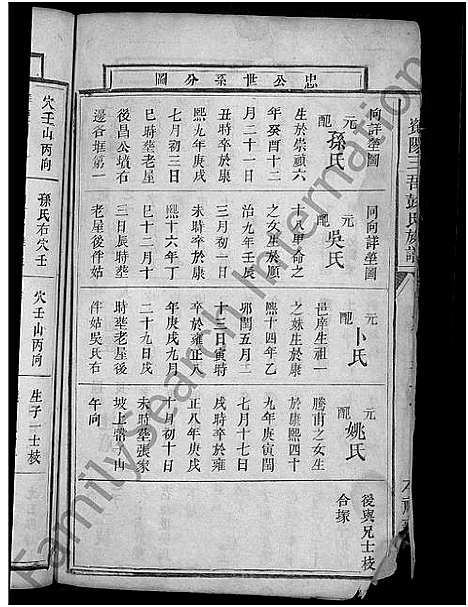 忠公世系分圖
向詳塋圖
元配孫氏
生於崇禎六
年癸酉十二
月二十一日
丑時卒於康
熙九年庚戌
七月初三日
巳時塟老屋
後昌公墳右
邊各堆第一
穴壬山丙向
同向詳塋圖
元配吳氏
十八甲命之
之女生於順
治九年壬辰
三月初一日
未時卒於康
熙十六年丁
巳十二月十
三日辰時塟
老屋後件姑
孫氏右穴壬
元配卜氏
邑庠生祖一
之妹生於康
熙十四年乙
卯閏五月二
十三日寅時
卒於雍正八
年庚戌九月
二十九日戌
時塟老屋後
件姑吳氏右
穴壬山丙向
元配姚氏
騰甫之女生
於康熙四十
九年庚寅閏
七月十七日
戌時卒於雍
正八年庚戌
十月初十日
未時塟張家
坡上晉子山
午向
生子一士棱
後與兄士棱
合塚
資陽三吾彭氏族譜
FamilySearch International